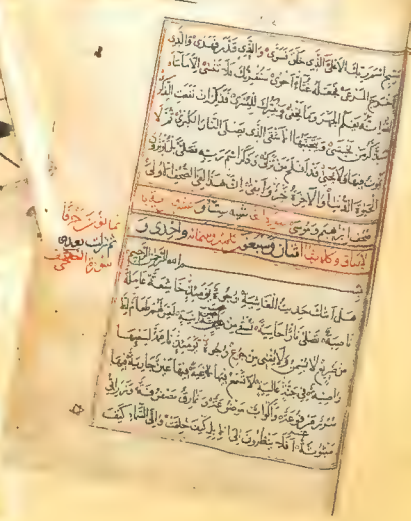 سبح اسم ربك الاعلى الذي خلق فسوى والذي قدر فهدى والذي
اخرج المرعى فجعله غثاء احوى سنقرئك فلا تنسى الا ما شاء
الله انه يعلم الجهر وما يخفى ونيسرك لليسرى فذكر ان نفعت الذكرى
سيذكر من يخشى ويتجنبها الاشقى الذي يصلى النار الكبرى ثم لا
يموت فيها ولا يحيى قد افلح من تزكى وذكر اسم ربه فصلى بل تؤثرون
الحيوة الدنيا والاخرة خير وابقى ان هذا لفي الصحف الاولى
صحف ابرهيم وموسى
وكلماتها اثنان وسبعون واحدى و
بسم الله الرحمن الرحيم
هل اتاك حديث الغاشية وجوه يومئذ خاشعة عاملة
ناصبة تصلى نارا حامية تسقى من عين انية ليس لهم طعام الا
من ضريع لا يسمن ولا يغنى من جوع وجوه يومئذ ناعمة لسعيها
راضية في جنة عالية لا تسمع فيها لاغية فيها عين جارية فيها
سرر مرفوعة واكواب موضوعة ونمارق مصفوفة وزرابي
مبثوثة افلا ينظرون الى الابل كيف خلقت والى السماء كيف
حرفا
نزلت بعد
سورة